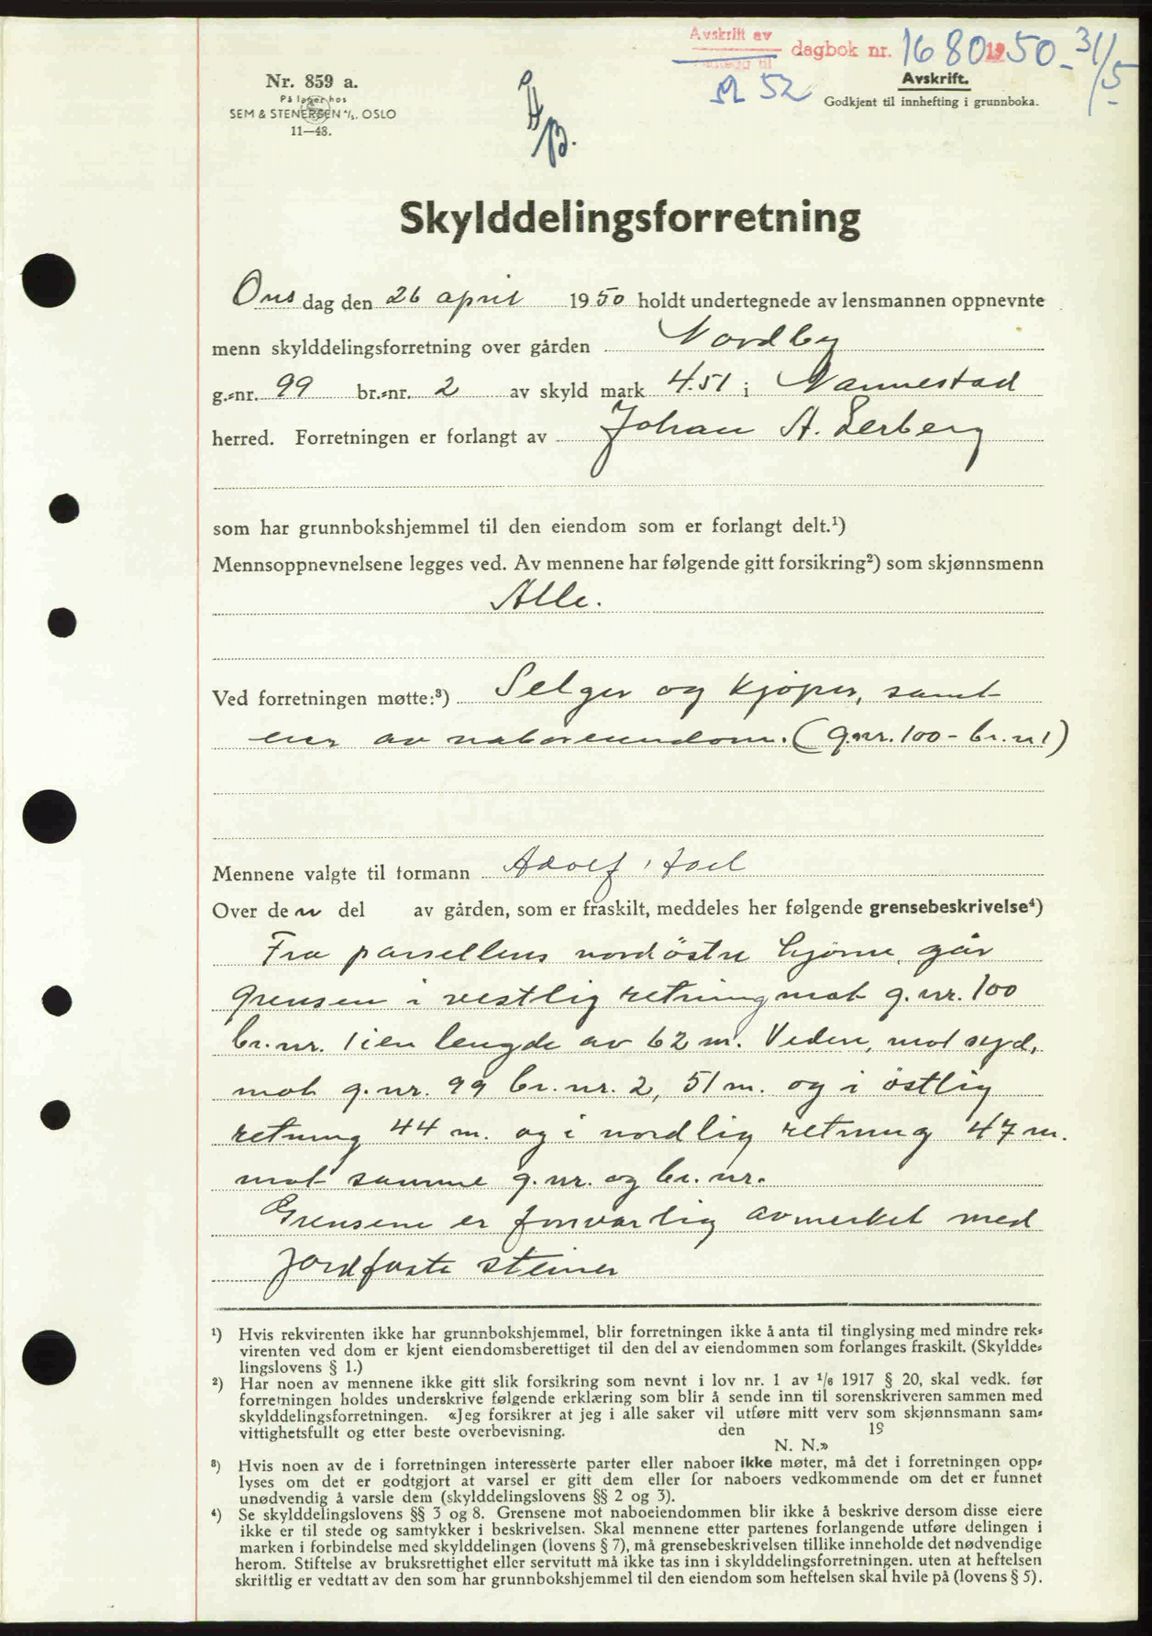 Avskrift av
dagbok nr. 1680 1950 - 31/5
Nr. 859 a.
På lager hos
SEM & STENERSEN A/S. OSLO
11—48.
Avskrift.
Godkjent til innhefting i grunnboka.
52
Skylddelingsforretning
Ons dag den 26 april 1950 holdt undertegnede av lensmannen oppnevnte
menn skylddelingsforretning over gården Nordby
g.-nr. 99 br.-nr. 2 av skyld mark 4.51 i Nannestad
herred. Forretningen er forlangt av Johan A. Lerberg
som har grunnbokshjemmel til den eiendom som er forlangt delt.¹)
Mennsoppnevnelsene legges ved. Av mennene har følgende gitt forsikring²) som skjønnsmenn
Alle.
Ved forretningen møtte:³) Selger og kjøper, samt
eier av naboeiendom. (g.nr. 100 - br.n 1)
Mennene valgte til formann Adolf
Over den del av gården, som er fraskilt, meddeles her følgende grensebeskrivelse⁴)
Fra parsellens nordöstre hjörne, går
grensen i vestlig retning mot g.nr. 100
br.nr. 1 i en lengde av 62 m. Videre, mot syd,
mot g.nr. 99 br.nr. 2, 51 m. og i östlig
retning 44 m. og i nordlig retning 47 m.
mot samme g.nr. og br.nr.
Grensene er forsvarlig avmerket med
jordfaste steiner
¹) Hvis rekvirenten ikke har grunnbokshjemmel, blir forretningen ikke å anta til tinglysing med mindre rek-
virenten ved dom er kjent eiendomsberettiget til den del av eiendommen som forlanges fraskilt. (Skyldde-
lingslovens § 1.)
²) Har noen av mennene ikke gitt slik forsikring som nevnt i lov nr. 1 av 1/6 1917 § 20, skal vedk. før
forretningen holdes underskrive følgende erklæring som blir å sende inn til sorenskriveren sammen med
skylddelingsforretningen. «Jeg forsikrer at jeg i alle saker vil utføre mitt verv som skjønnsmann sam-
vittighetsfullt og etter beste overbevisning. den 19
N. N.»
³) Hvis noen av de i forretningen interesserte parter eller naboer ikke møter, må det i forretningen opp-
lyses om det er godtgjort at varsel er gitt dem eller for naboers vedkommende om det er funnet
unødvendig å varsle dem (skylddelingslovens §§ 2 og 3).
⁴) Se skylddelingslovens §§ 3 og 8. Grensene mot naboeiendommen blir ikke å beskrive dersom disse eiere
ikke er til stede og samtykker i beskrivelsen. Skal mennene etter partenes forlangende utføre delingen i
marken i forbindelse med skylddelingen (lovens § 7), må grensebeskrivelsen tillike inneholde det nødvendige
herom. Stiftelse av bruksrettighet eller servitutt må ikke tas inn i skylddelingsforretningen. uten at heftelsen
skriftlig er vedtatt av den som har grunnbokshjemmel til den eiendom som heftelsen skal hvile på (lovens § 5).